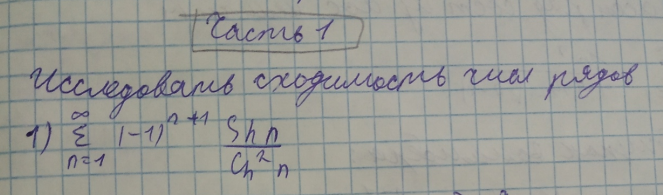 Часть 1
Исследовать сходимость числ рядов
1) ∞ Σ n=1 (-1)^{n+1} Sh n / Ch² n